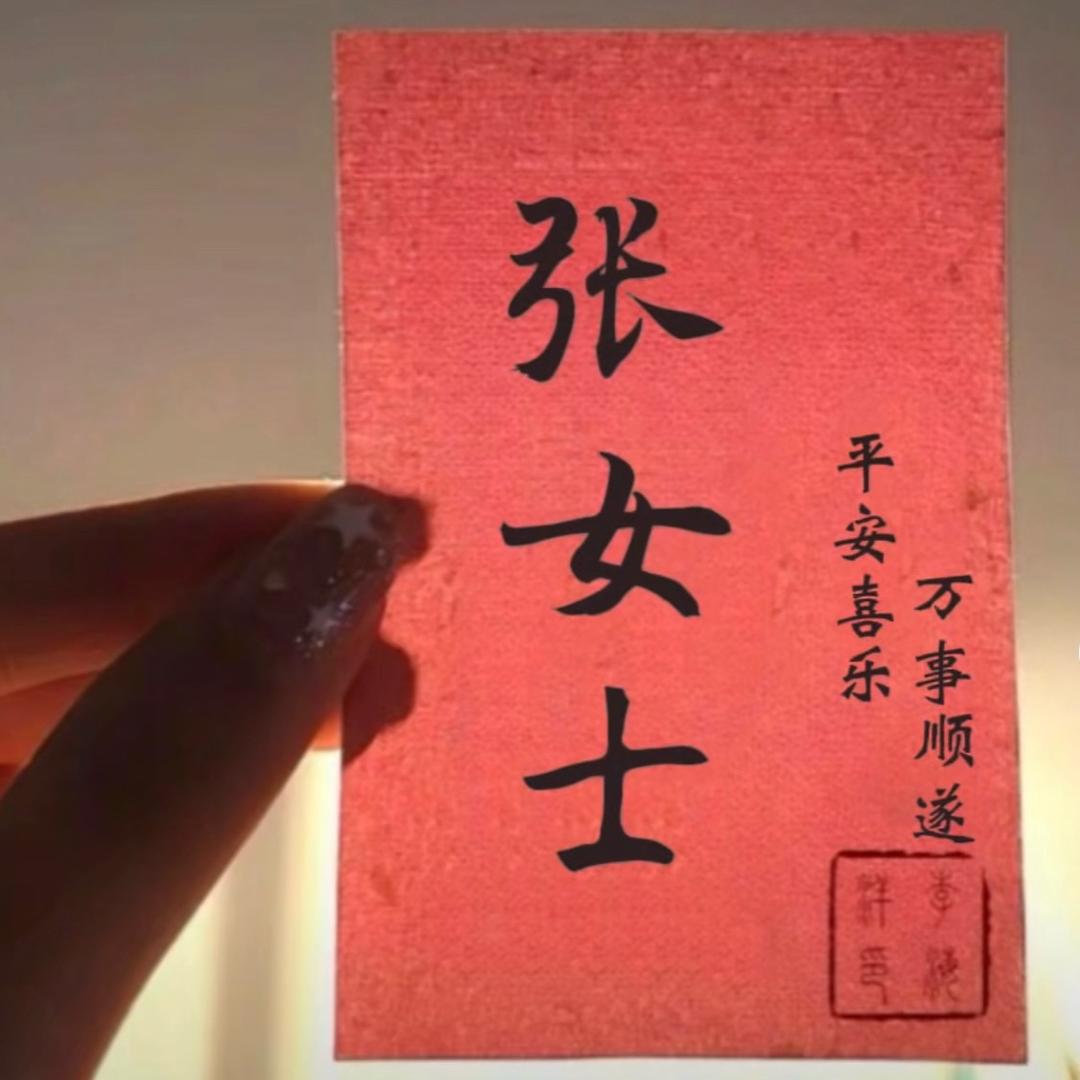 张女士
万事顺遂
平安喜乐